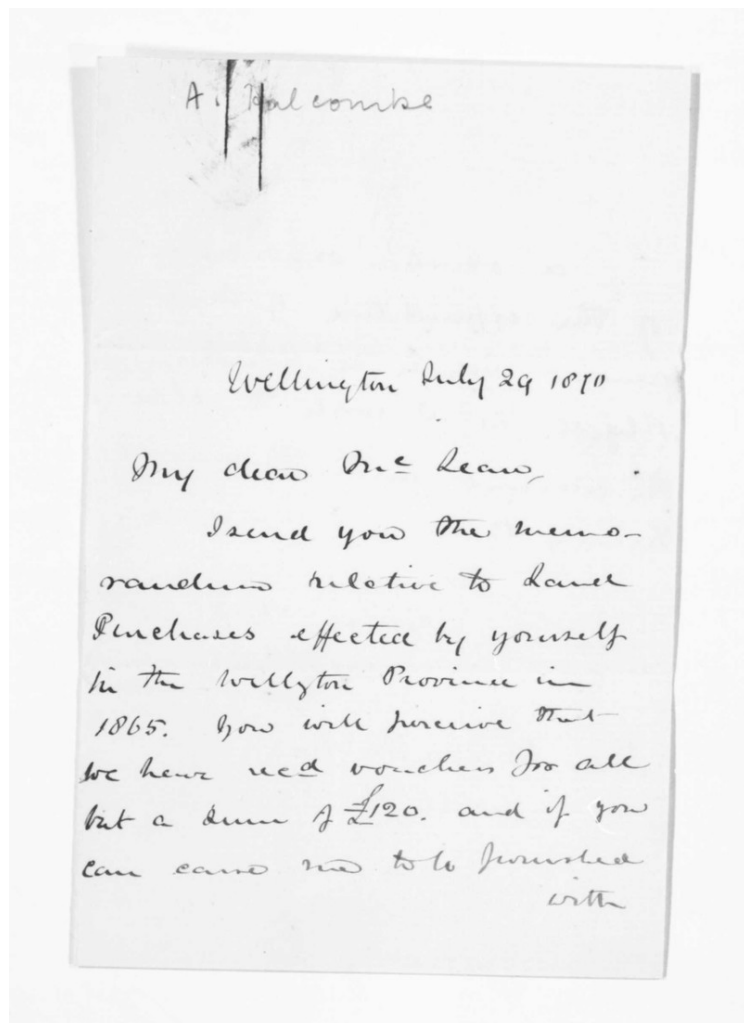 A. Halcombe
Wellington July 29 1870
My dear McLean,
I send you the memo-
randum relative to Land
Purchases effected by yourself
in the Wellgton Province in
1865. You will perceive that
we have recd vouchers for all
but a sum of £120. and if you
can cause me to be furnished
with